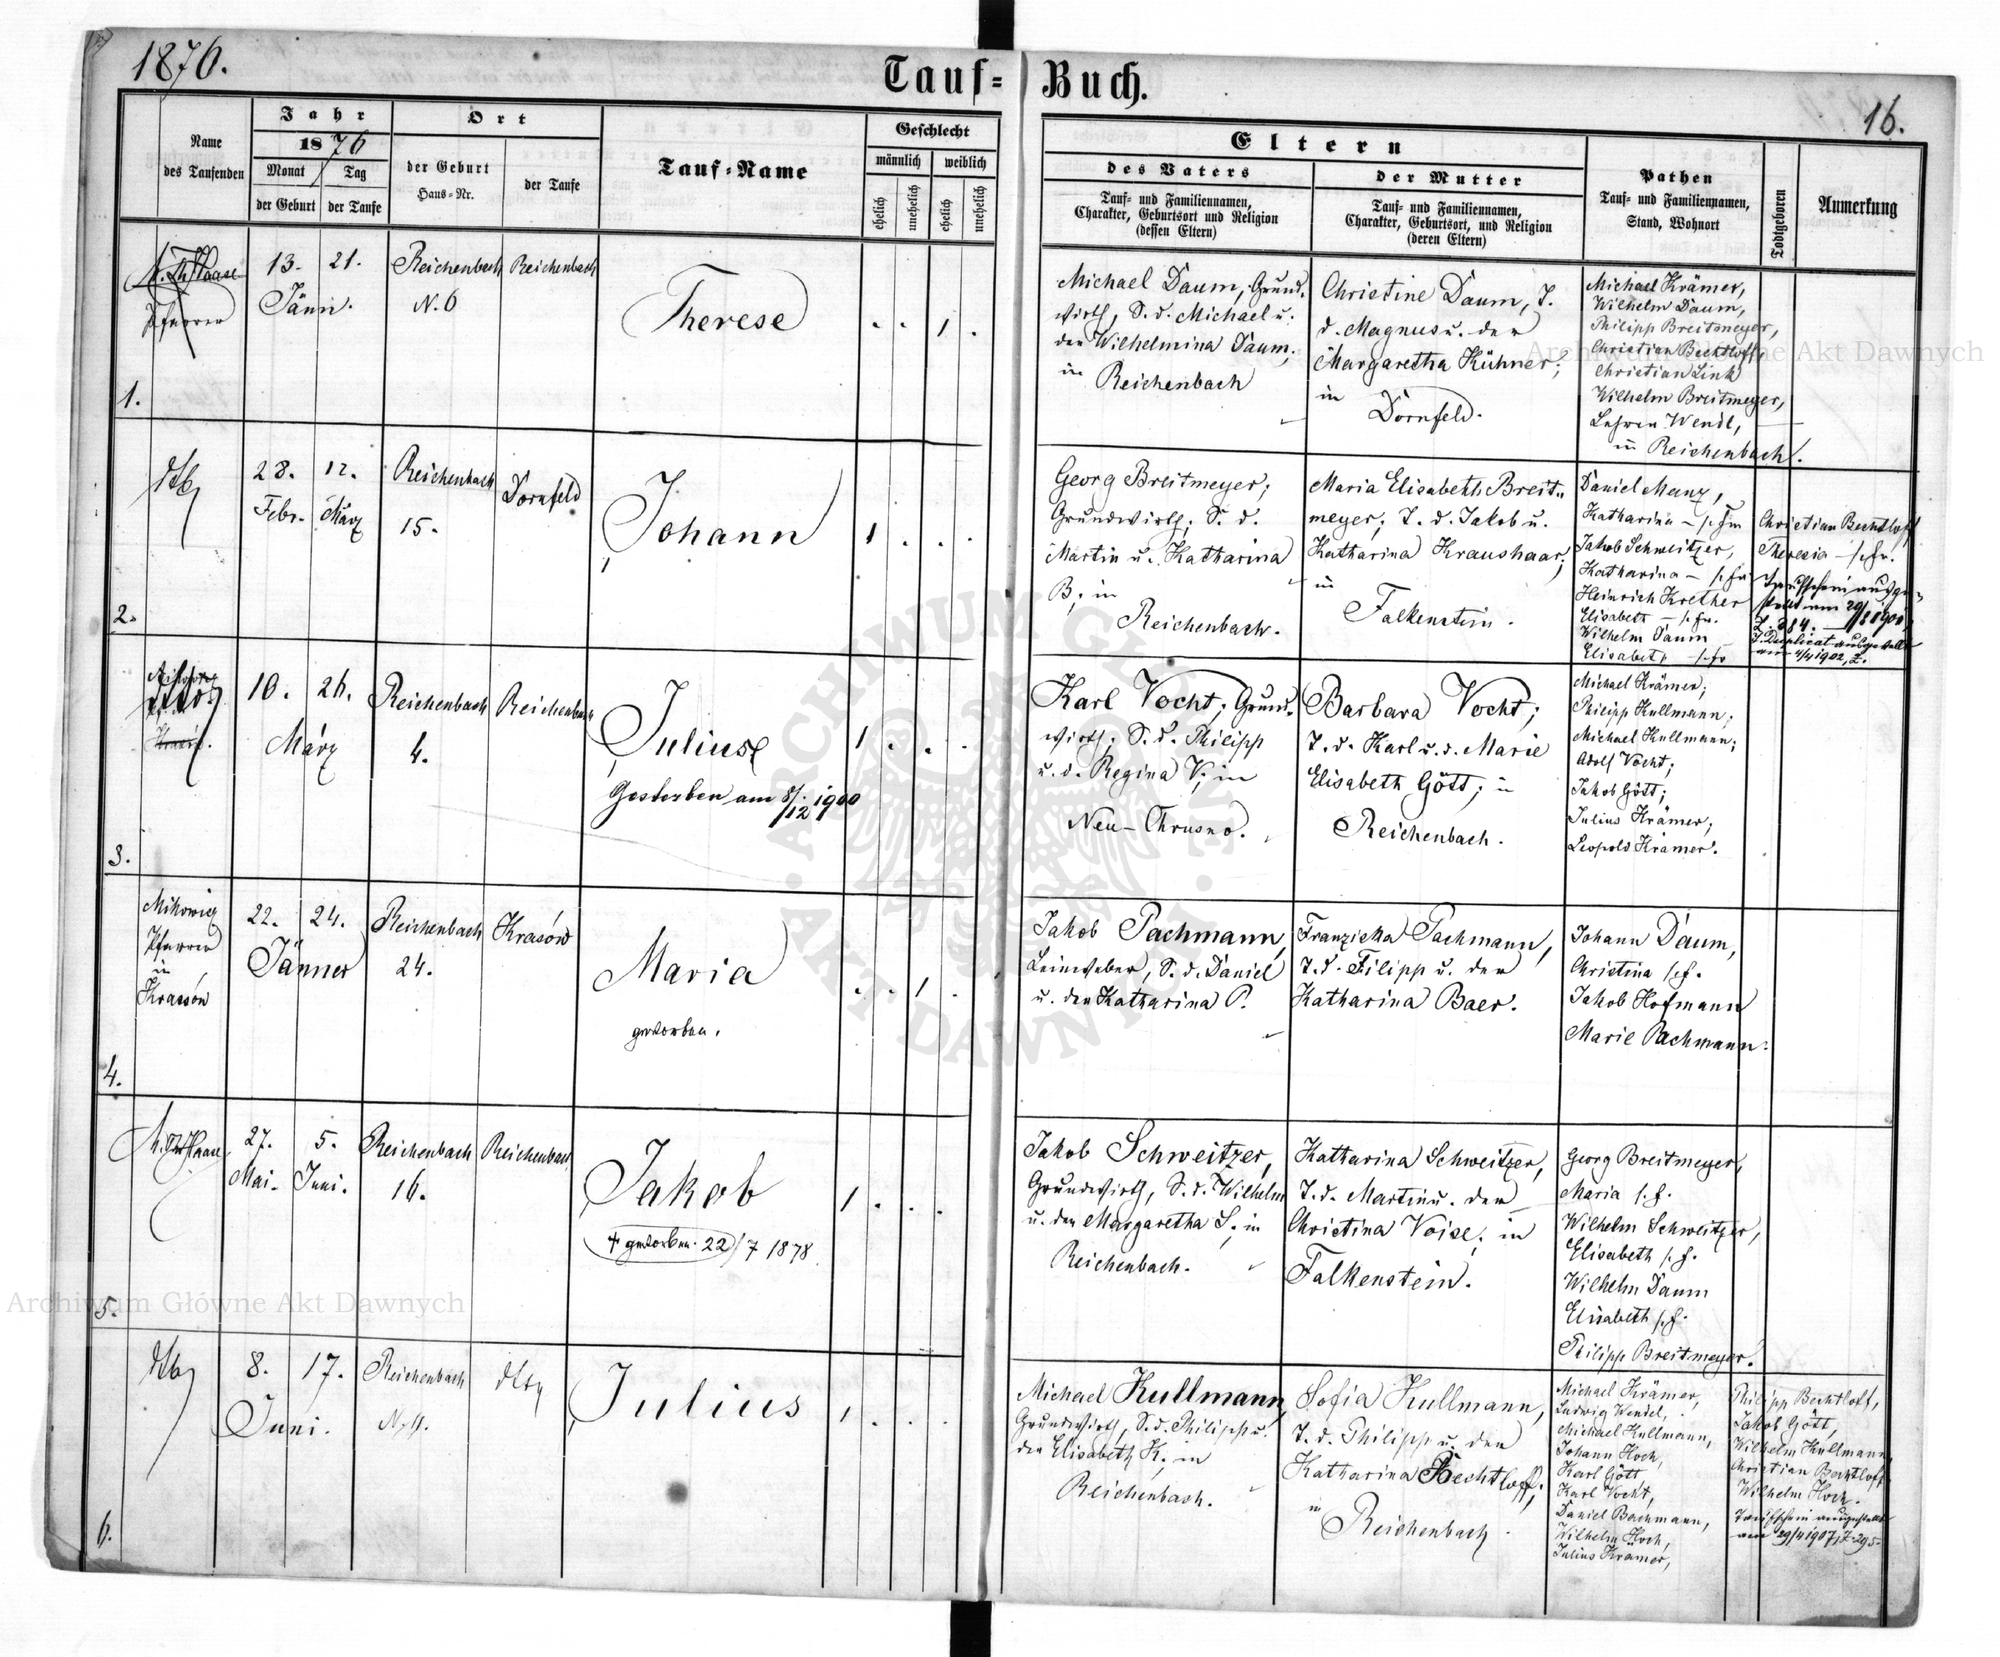 1876.
Tauf-Buch.
16.
Name
des Taufenden
Jahr
1876
Monat
der Geburt
Tag
der Taufe
Ort
der Geburt
Haus-Nr.
der Taufe
Tauf-Name
Geschlecht
männlich
weiblich
ehelich
unehelich
ehelich
unehelich
Eltern
des Vaters
Tauf- und Familiennamen,
Charakter, Geburtsort und Religion
(dessen Eltern)
der Mutter
Tauf- und Familiennamen,
Charakter, Geburtsort, und Religion
(deren Eltern)
Pathen
Tauf- und Familiennamen,
Stand, Wohnort
Todtgeboren
Anmerkung
1.
Haase
Pfarrer
13.
21.
Jänn.
Reichenbach
N. 6
Reichenbach
Therese
1
Michael Daum, Grund-
wirth, S. d. Michael u.
der Wilhelmina Daum,
in
Reichenbach
Christine Daum, T.
d. Magnus u. der
Margaretha Kühner;
in
Dornfeld.
Michael Krämer,
Wilhelm Daum,
Philipp Breitmeyer,
Christian Bechtloff,
Christian Link
Wilhelm Breitmeyer,
Lehrer Wendl,
in Reichenbach.
2.
28.
12.
Febr.
März
Reichenbach
15.
Dornfeld
Johann
1
Georg Breitmeyer;
Grundwirth; S. d.
Martin u. Katharina
B; in
Reichenbach.
Maria Elisabeth Breit-
meyer; T. d. Jakob u.
Katharina Kraushaar;
in
Falkenstein.
Daniel Manz,
Katharina
Jakob Schweitzer,
Katharina
Heinrich Krether
Elisabeth
Wilhelm Daum
Elisabeth
Christian Bechtloff
Theresia
Taufschein ausge-
stellt am 29/8 1900,
Z. 284.
Duplicat ausgestellt
am 4/4 1902, Z.
3.
10.
26.
März
Reichenbach
4.
Reichenbach
Julius
Gestorben am 8/12 1900
1
Karl Vocht; Grund-
wirth; S. d. Philipp
u. d. Regina V; in
Neu-Chrusno.
Barbara Vocht;
T. d. Karl u. d. Marie
Elisabeth Gött; in
Reichenbach.
Michael Krämer;
Philipp Kullmann;
Michael Kullmann;
Adolf Vocht;
Jakob Gött;
Julius Krämer;
Leopold Krämer.
4.
Mikowicz
Pfarrer
in
Krasów
22.
24.
Jänner
Reichenbach
24.
Krasów
Maria
gestorben.
1
Jakob Pachmann,
Leinweber, S. d. Daniel
u. der Katharina P.
Franziska Pachmann,
T. d. Filipp u. der
Katharina Baer.
Johann Daum,
Christina s. f.
Jakob Hofmann
Marie Pachmann.
5.
Haase
27.
5.
Mai.
Juni.
Reichenbach
16.
Reichenbach
Jakob
+ gestorben. 22/7 1878.
1
Jakob Schweitzer,
Grundwirth, S. d. Wilhelm
u. der Margaretha S; in
Reichenbach.
Katharina Schweitzer,
T. d. Martin u. der
Christina Voise; in
Falkenstein.
Georg Breitmeyer,
Maria s. f.
Wilhelm Schweitzer,
Elisabeth s. f.
Wilhelm Daum
Elisabeth s. f.
Philipp Breitmeyer.
6.
8.
17.
Juni.
Reichenbach
Julius
1
Michael Kullmann,
Grundwirth, S. d. Philipp u.
der Elisabeth K; in
Reichenbach.
Sofia Kullmann,
T. d. Philipp u. der
Katharina Bechtloff;
in
Reichenbach.
Michael Krämer,
Ludwig Wendel,
Michael Kullmann,
Johann Hoch,
Karl Gött,
Karl Vocht,
Daniel Bachmann,
Wilhelm Hoch,
Julius Krämer,
Philipp Bechtloff,
Jakob Gött,
Wilhelm Kullmann,
Christian Bechtloff
Wilhelm Hoch.
Taufschein ausgestellt
am 29/4 1907, Z. 295.
Archiwum Główne Akt Dawnych
Archiwum Główne Akt Dawnych
ARCHIWUM GŁÓWNE AKT DAWNYCH